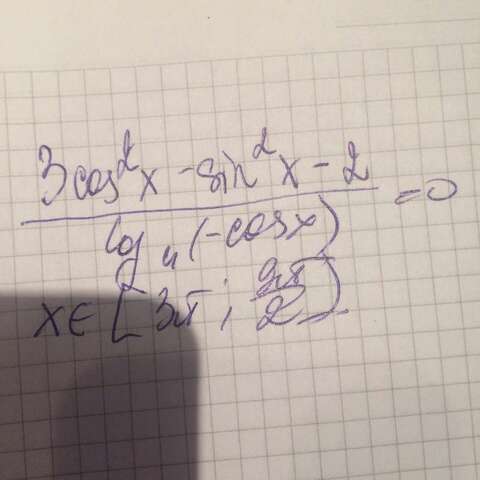 3cos²x - sin²x - 2
log₄(-cosx) = 0
x ∈ [3π; 9π/2]